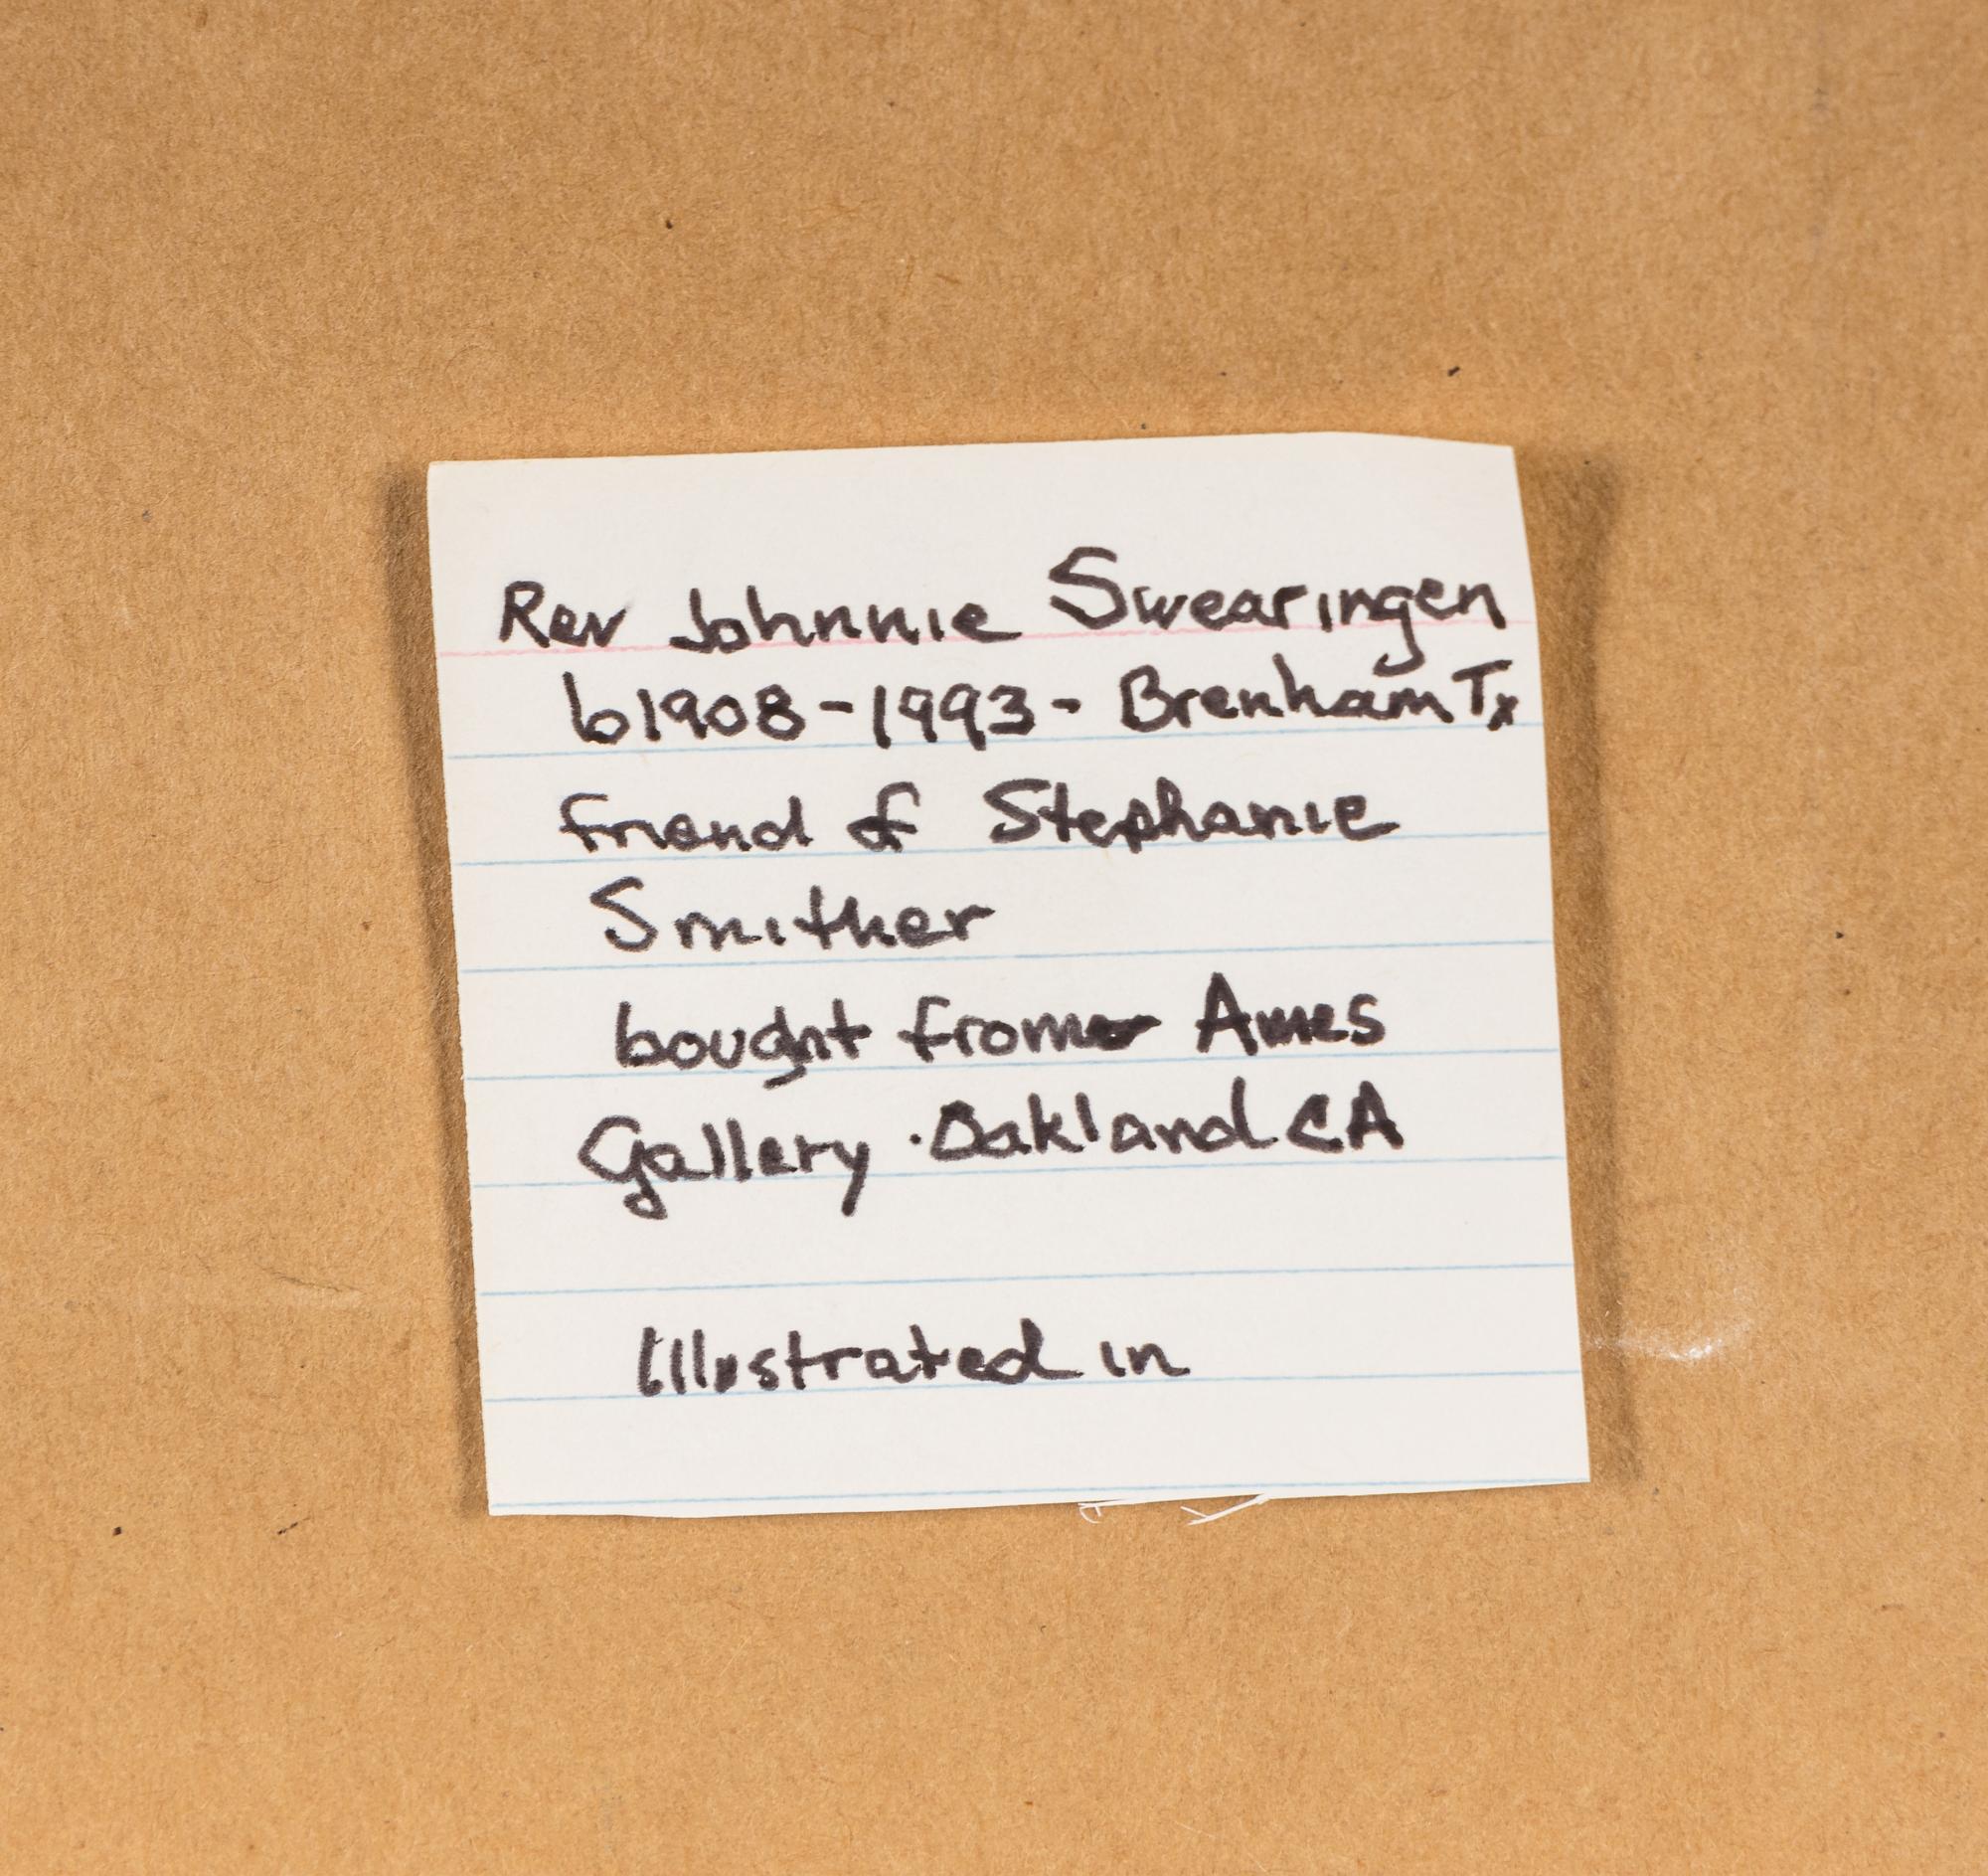 Rev Johnnie Swearingen
b1908-1993- Brenham Tx
friend of Stephanie
Smither
bought from Ames
Gallery · Oakland CA
Illustrated in